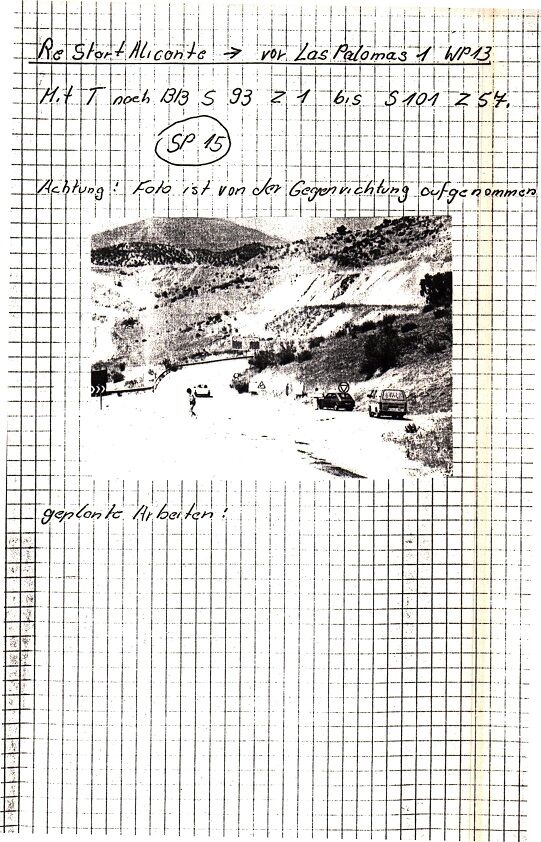 Re Start Alicante → vor Las Palomas 1 WP13
Mit T nach BB S 93 Z 1 bis S 101 Z 57.
SP 15
Achtung: Foto ist von der Gegenrichtung aufgenommen
geplante Arbeiten: